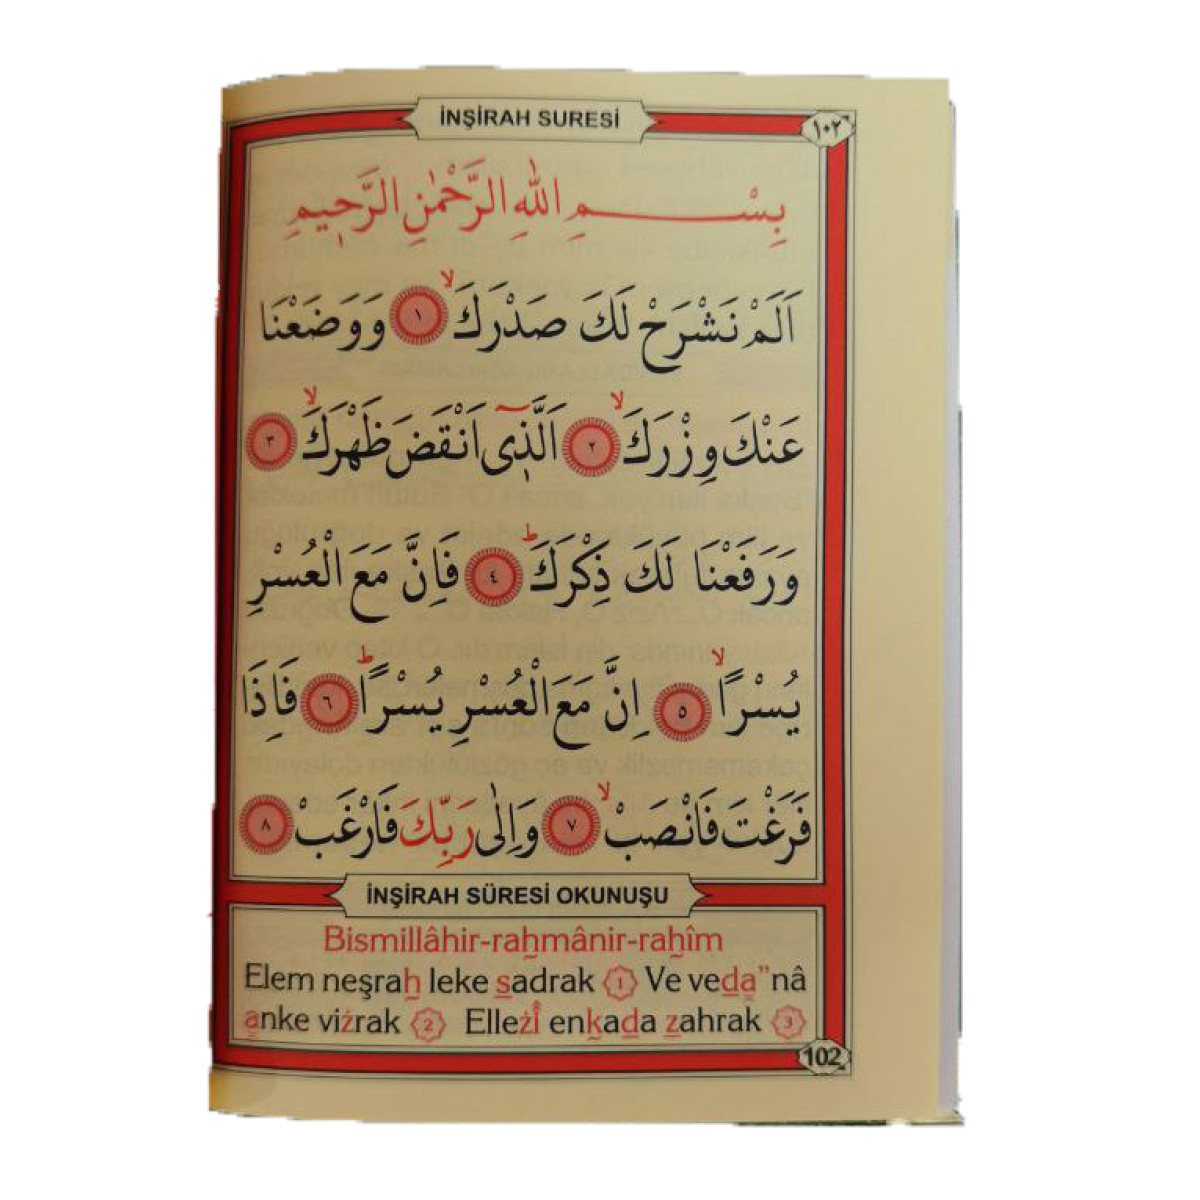 İNŞİRAH SURESİ
١٠٢
بِسْمِ اللّٰهِ الرَّحْمٰنِ الرَّح۪يمِ
اَلَمْ نَشْرَحْ لَكَ صَدْرَكَۙ ﴿١﴾ وَوَضَعْنَا
عَنْكَ وِزْرَكَۙ ﴿٢﴾ اَلَّذ۪ٓي اَنْقَضَ ظَهْرَكَۙ ﴿٣﴾
وَرَفَعْنَا لَكَ ذِكْرَكَۜ ﴿٤﴾ فَاِنَّ مَعَ الْعُسْرِ
يُسْرًاۙ ﴿٥﴾ اِنَّ مَعَ الْعُسْرِ يُسْرًاۜ ﴿٦﴾ فَاِذَا
فَرَغْتَ فَانْصَبْۙ ﴿٧﴾ وَاِلٰى رَبِّكَ فَارْغَبْ ﴿٨﴾
İNŞİRAH SÜRESİ OKUNUŞU
Bismillâhir-raẖmânir-raẖîm
Elem neşraẖ leke s̲adrak 1 Ve ved̲a̲"nâ
a̲nke viżrak 2 Elleżî enḵad̲a z̲ahrak 3
102